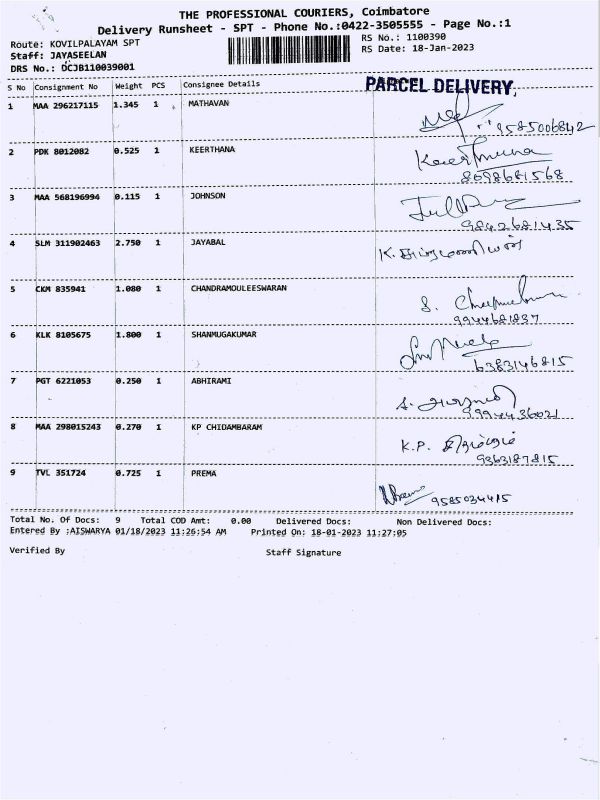 THE PROFESSIONAL COURIERS, Coimbatore
Delivery Runsheet - SPT - Phone No.:0422-3505555 - Page No.:1
Route: KOVILPALAYAM SPT RS No.: 1100390
Staff: JAYASEELAN RS Date: 18-Jan-2023
DRS No.: DCJB110039001
S No Consignment No Weight PCS Consignee Details PARCEL DELIVERY
1 MAA 296217115 1.345 1 MATHAVAN
9585006842
2 PDK 8012082 0.525 1 KEERTHANA
8098681568
3 MAA 568196994 0.115 1 JOHNSON
9842681435
4 SLM 311902463 2.750 1 JAYABAL K.
5 CKM 835941 1.080 1 CHANDRAMOULEESWARAN
S.
9944681837
6 KLK 8105675 1.800 1 SHANMUGAKUMAR
6383146815
7 PGT 6221053 0.250 1 ABHIRAMI
9994436021
8 MAA 298015243 0.270 1 KP CHIDAMBARAM K.P.
9363187815
9 TVL 351724 0.725 1 PREMA
9585034415
Total No. Of Docs: 9 Total COD Amt: 0.00 Delivered Docs: Non Delivered Docs:
Entered By :AISWARYA 01/18/2023 11:26:54 AM Printed On: 18-01-2023 11:27:05
Verified By Staff Signature